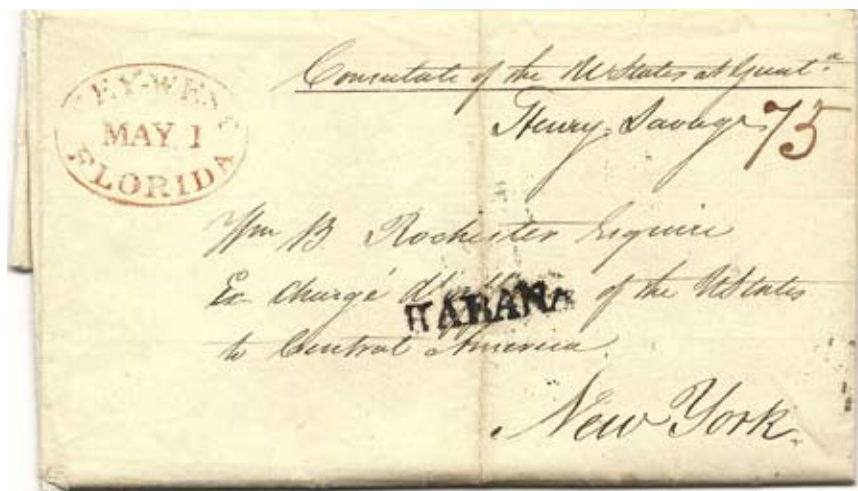 KEY-WEST
MAY 1
FLORIDA
Consulate of the UStates at Guatª
Henry Savage
75
Wm B. Rochester Esquire
Ex Chargé d'Affaires of the UStates
HABANA
to Central America
New York.